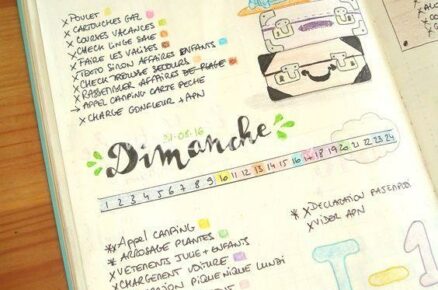 x POULET
x CARTOUCHES GAZ
x COURSES VACANCES
x CHECK LINGE SALE
x FAIRE LES VALISES
x TODO SIMON AFFAIRES ENFANTS
x CHECK TROUSSE SECOURS
x RASSEMBLER AFFAIRES DE PLAGE
→ APPEL CAMPING CARTE PECHE
x CHARGE GONFLEUR + APN
21-08-16
Dimanche
1 2 3 4 5 6 7 8 9 10 11 12 13 14 15 16 17 18 19 20 21 22 23 24
* x APPEL CAMPING
* x ARROSAGE PLANTES
x VETEMENTS JULIE + ENFANTS
x CHARGEMENT VOITURE
PIQUE NIQUE LUNDI
VACANCES
* x DECLARATION PAJEMPLOI
x VIDER APN
T-1